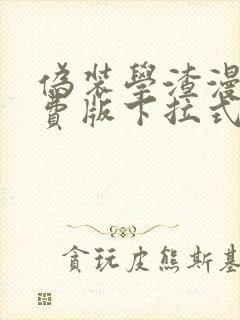 偽裝學渣漫
費版下拉式
貪玩皮熊斯基